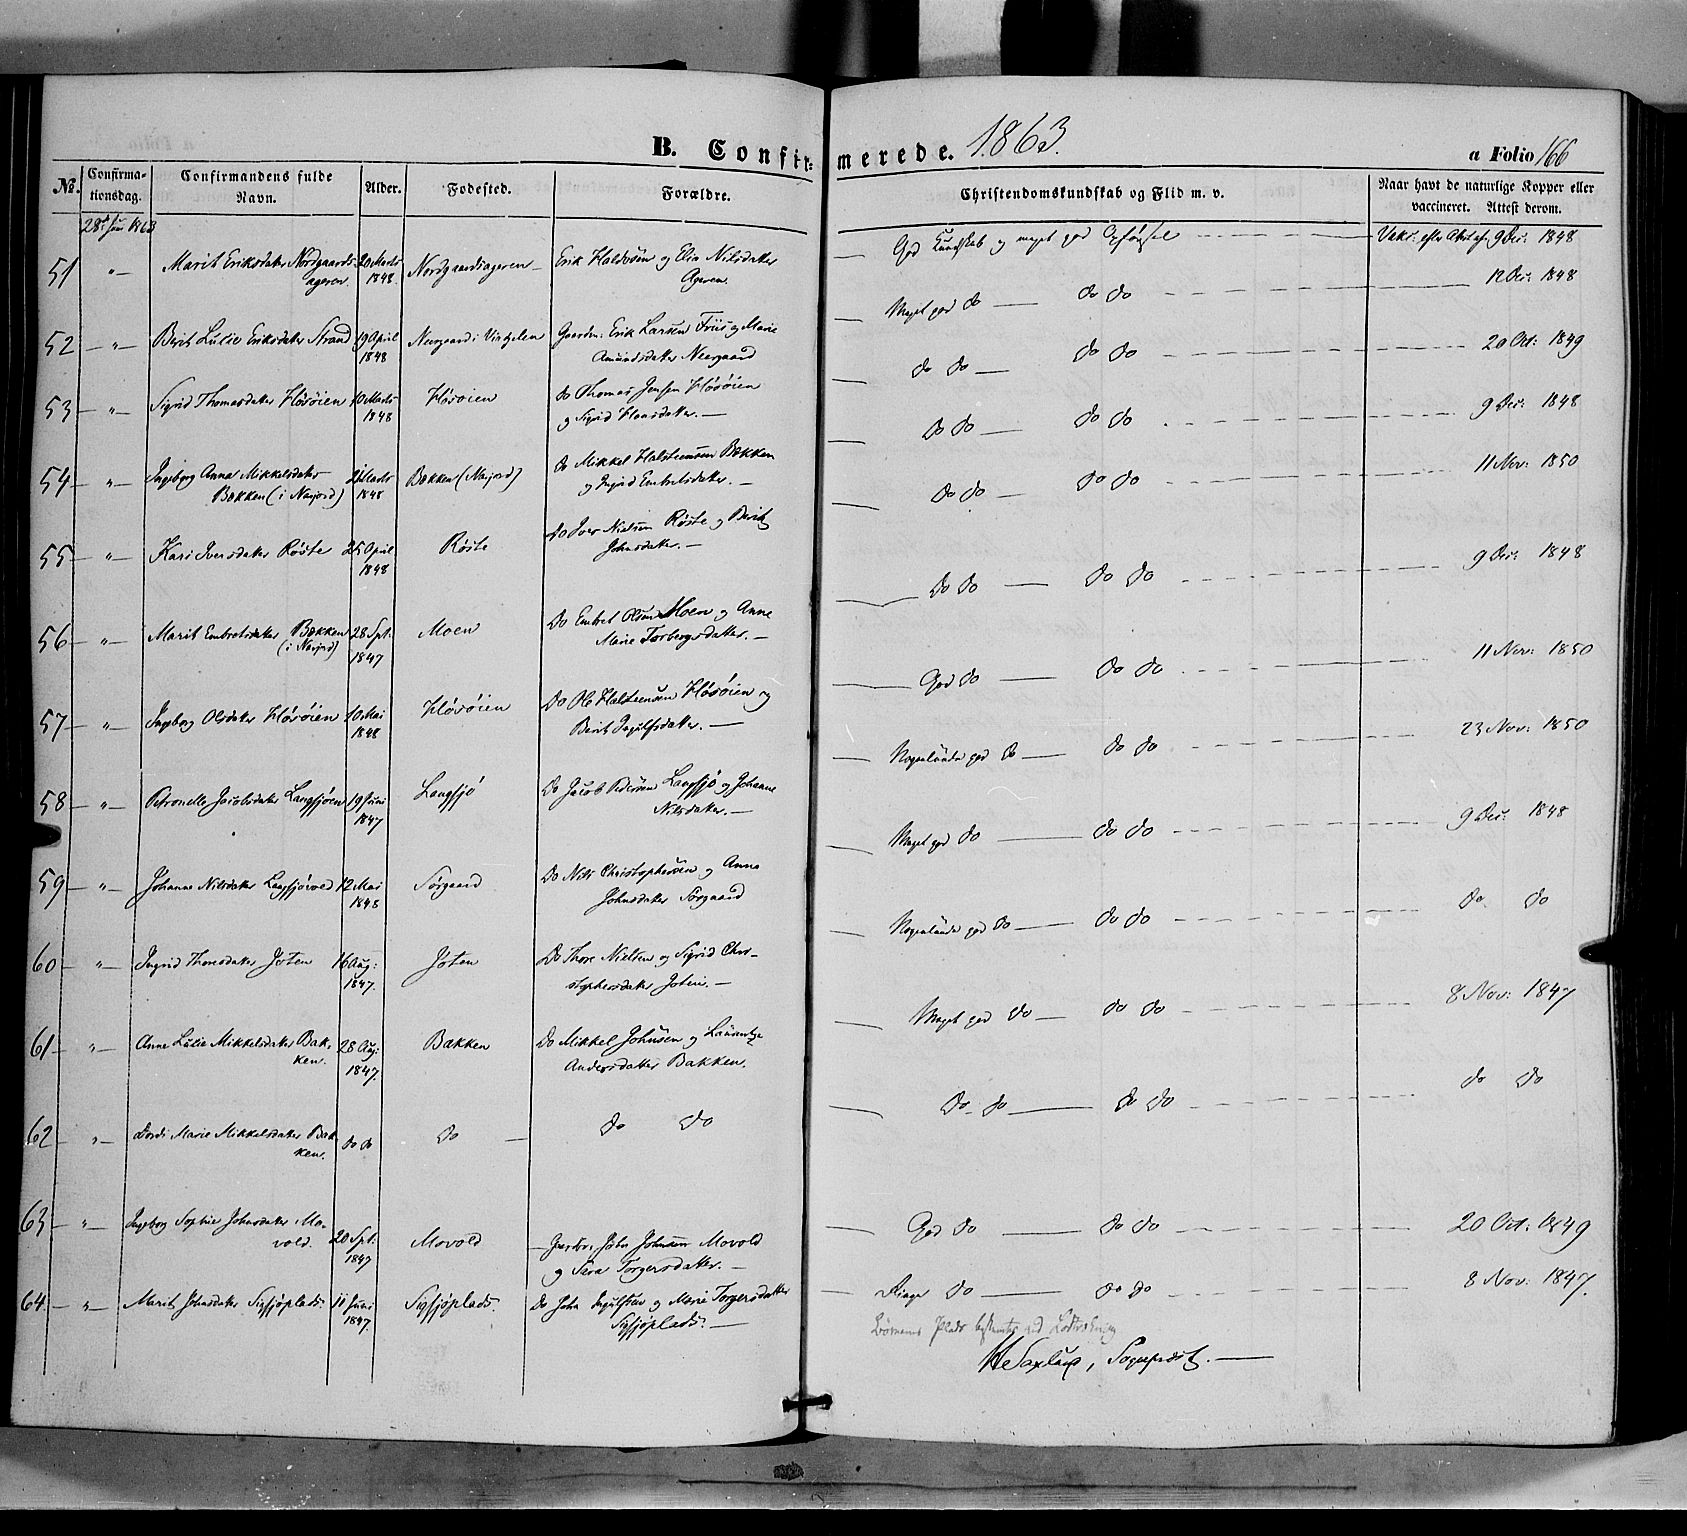 B. Confirmerede. 1863.
a Folio 166
No. Confirmationsdag. Confirmandens fulde Navn. Alder. Fodested. Forældre. Christendomskundskab og Flid m. v. Naar havt de naturlige Kopper eller vaccineret. Attest derom.
28 Juni 1863
51 " Marit Eriksdatter Nordgaards- 20 Marts Nordgaardsageren Erik Haldosen og Elin Nilsdatter God Kundskab og meget god Opførsel Vakc: efter Attest af 9 Dec: 1848
ageren. 1848. Ageren.
52 " Berit Lulie Eriksdatter Strand 19 April Neergaard i Vingelen Gaardm: Erik Larsen Friis og Marie Meget god do do do 12 Dec: 1848
1848 Amundsdatter Neergaard
53 " Sigrid Thomasdatter Høsøien 10 Marts Høsøien do Thomas Jensen Høsøien do do do do 20 Oct: 1849
1848 og Sigrid Hansdatter.
54 " Ingeborg Anna Mikkelsdatter Marts Bækken (Narjord) do Mikkel Halsteensen Bækken do do do do 9 Dec: 1848
Bækken (i Narjord) 1848 og Ingrid Embretsdatter.
55 " Kari Iversdatter Røste 25 April Røste do Iver Nielsen Røste og Berit do do do do 11 Nov: 1850
1848 Johnsdatter.
56 " Marit Embretsdatter Bækken 28 Spt. Moen do Embret Olsen Moen og Anne do do do do 9 Dec: 1848
(i Narjord) 1847 Marie Torbergsdatter.
57 " Ingeborg Olsdatter Høsøien 10 Mai Høsøien do Ole Halsteensen Høsøien og God do do do 11 Nov: 1850
1848 Berit Ingulfsdatter.
58 " Petronelle Jacobsdatter Langsjøen 19 Juni Langsjø do Jacob Pedersen Langsjø og Johanne Nogenlunde god do do do 23 Nov: 1850
1847 Nilsdatter.
59 " Johanne Nilsdatter Langsjøvold 12 Mai Sørgaard do Nils Christophersen og Anne Meget god do do do 9 Dec: 1848
1848 Johnsdatter Sørgaard
60 " Ingrid Thoresdatter Joten 16 Aug: Joten do Thore Nielsen og Sigrid Chri- Nogenlunde god do do do do do
1847. stophersdatter Joten.
61 " Anne Lulie Mikkelsdatter Bak- 28 Aug: Bakken do Mikkel Johnsen og Laurentze Meget god do do do 8 Nov: 1847
ken. 1847. Andersdatter Bakken.
62 " Dordi Marie Mikkelsdatter Bak- do do do do do do do do do do do
ken.
63 " Ingeborg Sophie Johnsdatter Mo- 20 Spt: Movold Gaardm: John Johnsen Movold God do do do 20 Oct: 1849
vold. 1847 og Sara Torgersdatter.
64 " Marit Johnsdatter Sigsjøplads. Juni Sigsjøplads. do John Ingulfsen og Marie Torgersdatter Ringe do do do 8 Nov: 1847.
1847. Sigsjøplads.
Børnenes Plads bestemtes ved Lodtrækning
Saxlund, Sognepræst.